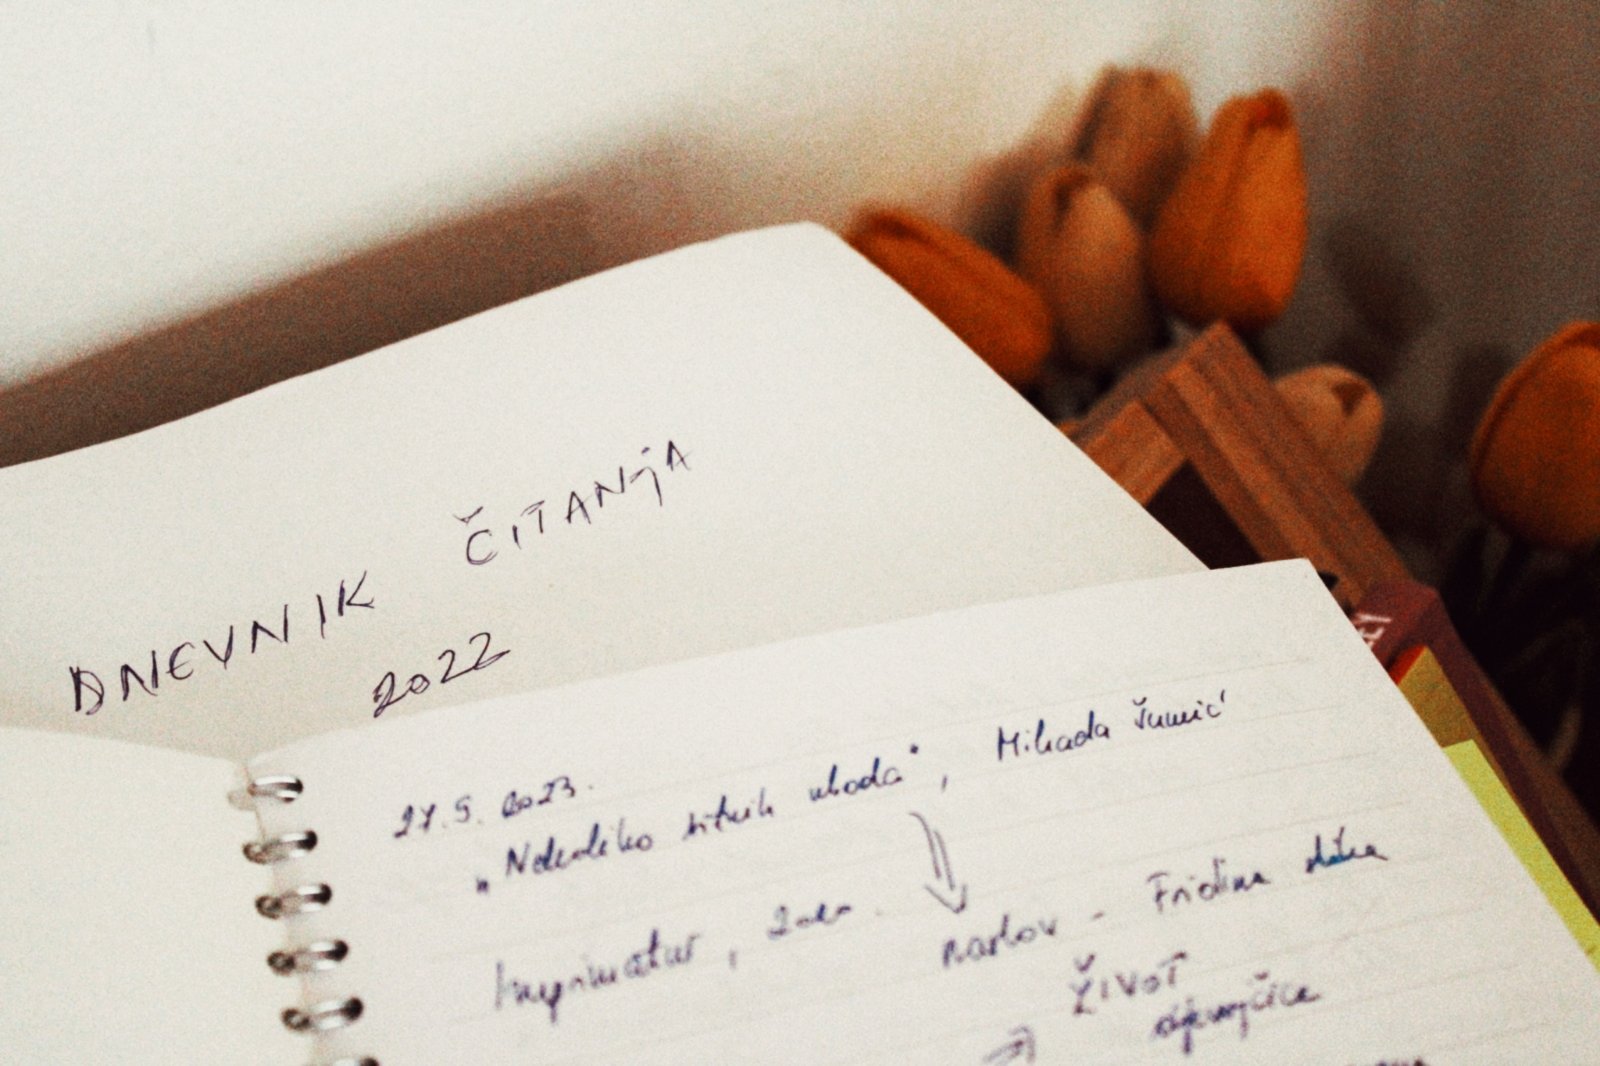 DNEVNIK ČITANjA
2022
27. 5. 2023.
„Nekoliko sitnih uboda", Mihada Šumić
Imprimatur, 2021.
naslov - Fridina slika
ŽIVOT
djevojčice